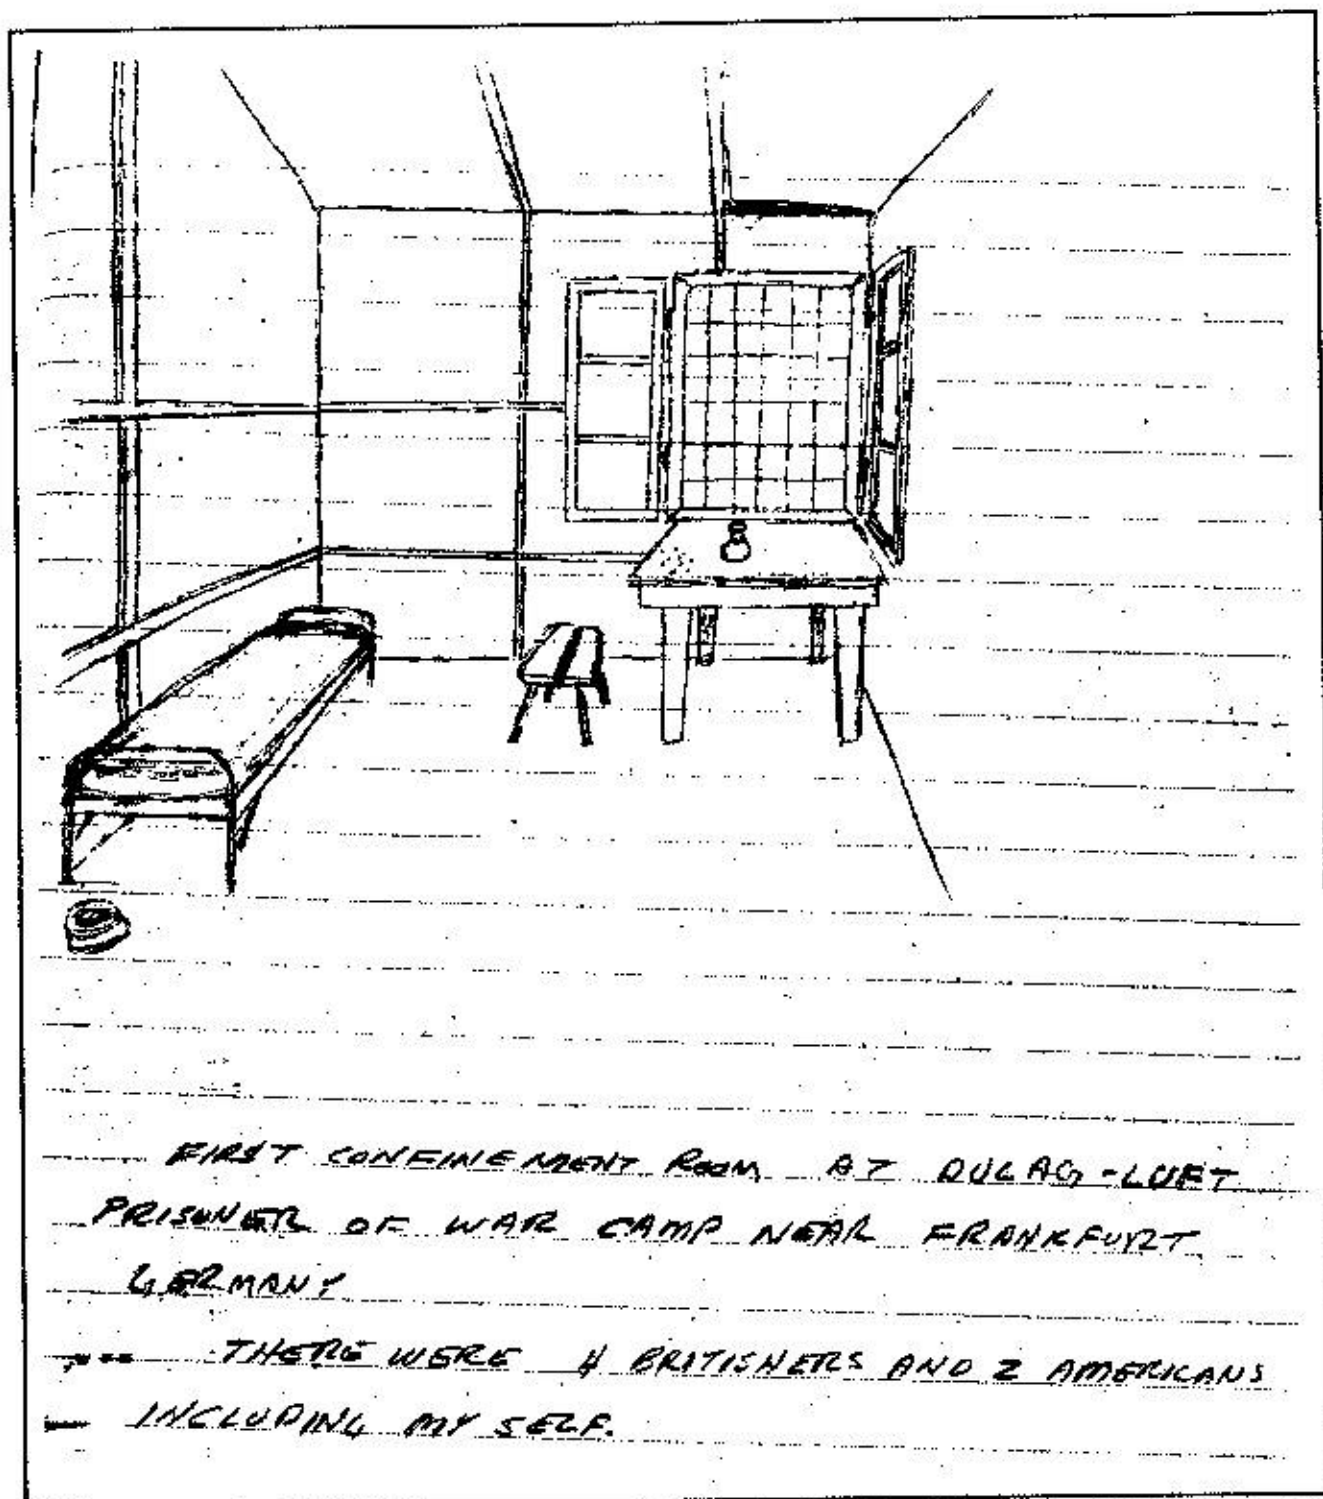 FIRST CONFINEMENT ROOM AT DULAG-LUFT
PRISONER OF WAR CAMP NEAR FRANKFURT
GERMANY
THERE WERE 4 BRITISHERS AND 2 AMERICANS
INCLUDING MY SELF.